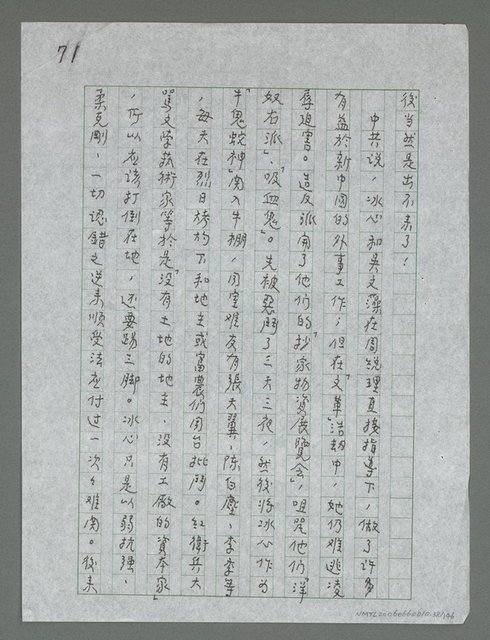 71
後当然是出不来了!
中共说,冰心和吳文藻在周总理直接指導下,做了许多
有益於新中國的外事工作;但在「文革」浩劫中,她仍难逃凌
辱迫害。造反派闹了他们的「抄家物資展覽会」,咀咒他们「洋
奴右派」、「吸血鬼」。先被惡鬥了三天三夜,然後将冰心作为
「牛鬼蛇神」関入牛棚,同室难友有張天翼、陈白塵、李季等
,每天在烈日烤灼下和地主或富農们同台批鬥。紅衛兵大
罵文学藝術家等於是「没有土地的地主、没有工廠的資本家」
,所以应该打倒在地,还要踢三脚。冰心只是以弱抗强、
柔克剛,一切认錯之逆来順受法应付过一次々难関。後来
NMTL20060660010.38/146